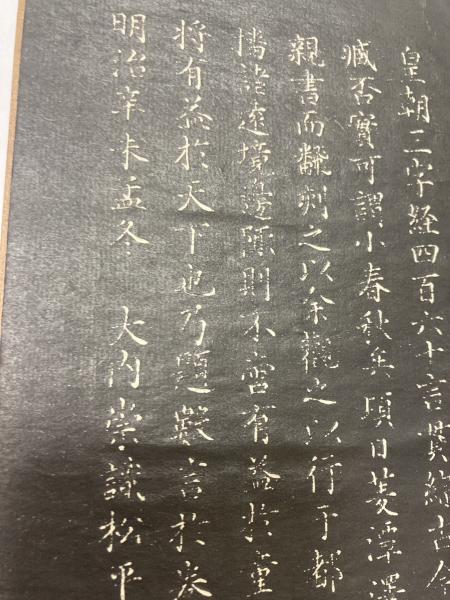 皇朝三字経四百六十言貫綜古今
臧否實可謂小春秋矣項日菱潭澤
親書而飜刻之以余觀之以行于都
播諸遠境邊陬則不啻有益於童
将有益於天下也乃題數言於卷
明治辛未孟冬 大内崇議松平